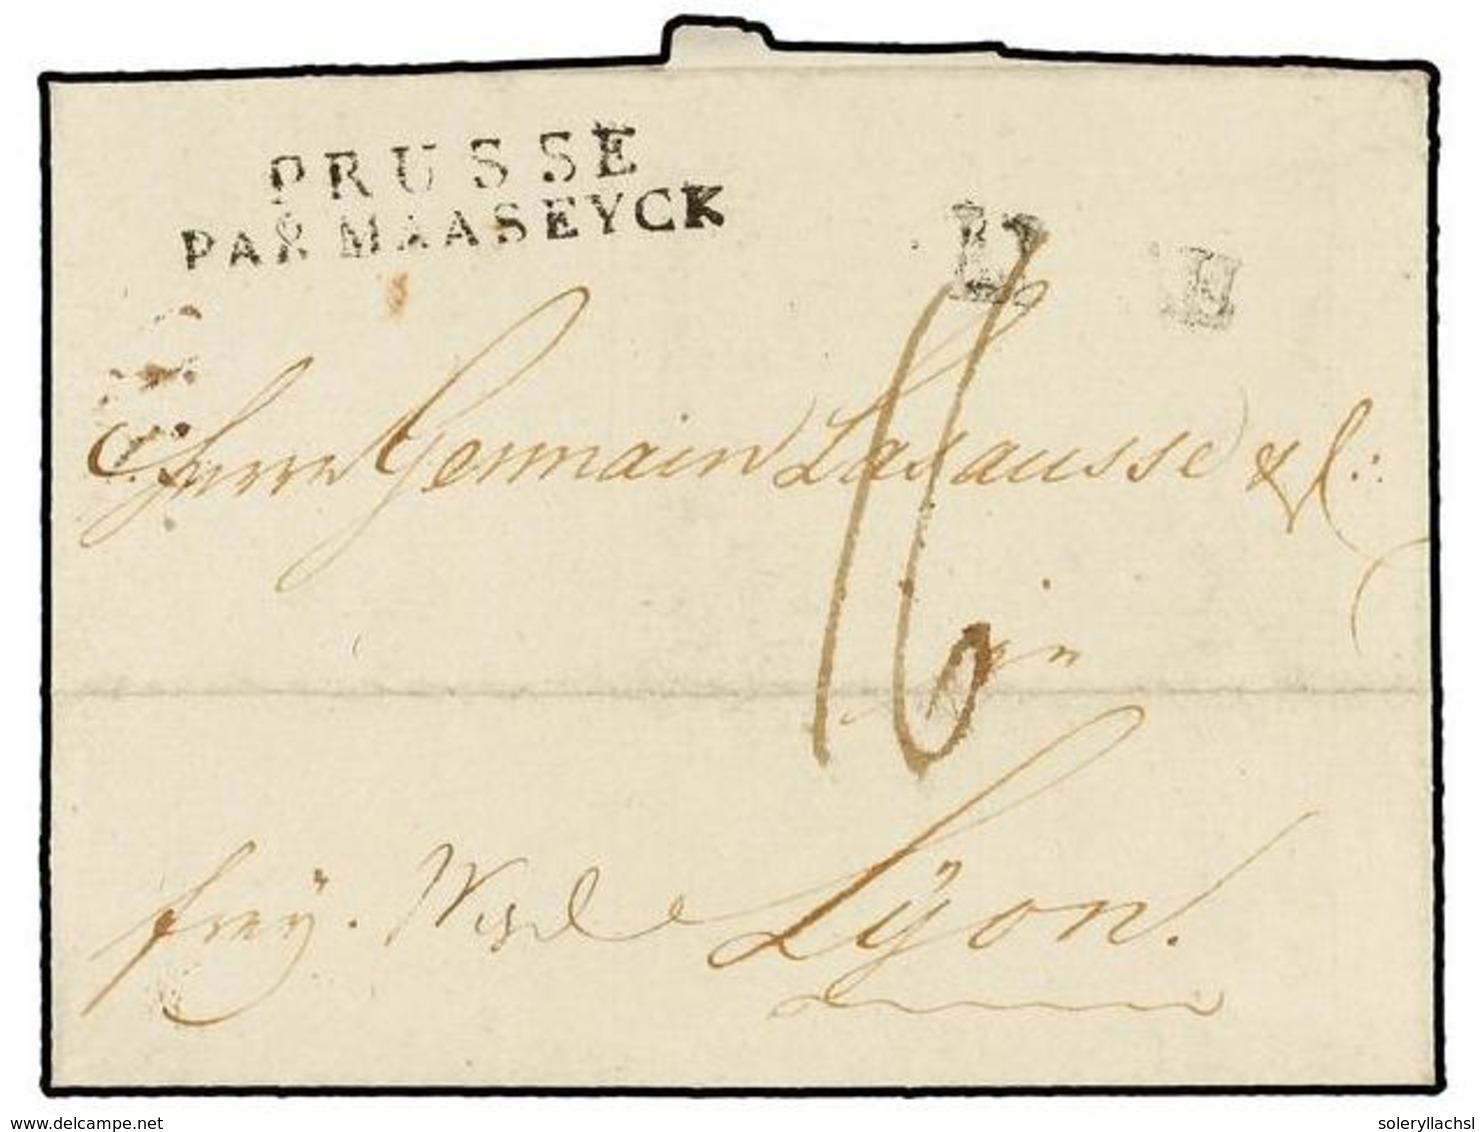 PRUSSE
PAR MAASEYCK
16
Herrn Germain Lasausse & C:
in
freÿ. Wesel
Lÿon.
delcampe.net
soleryllachsl